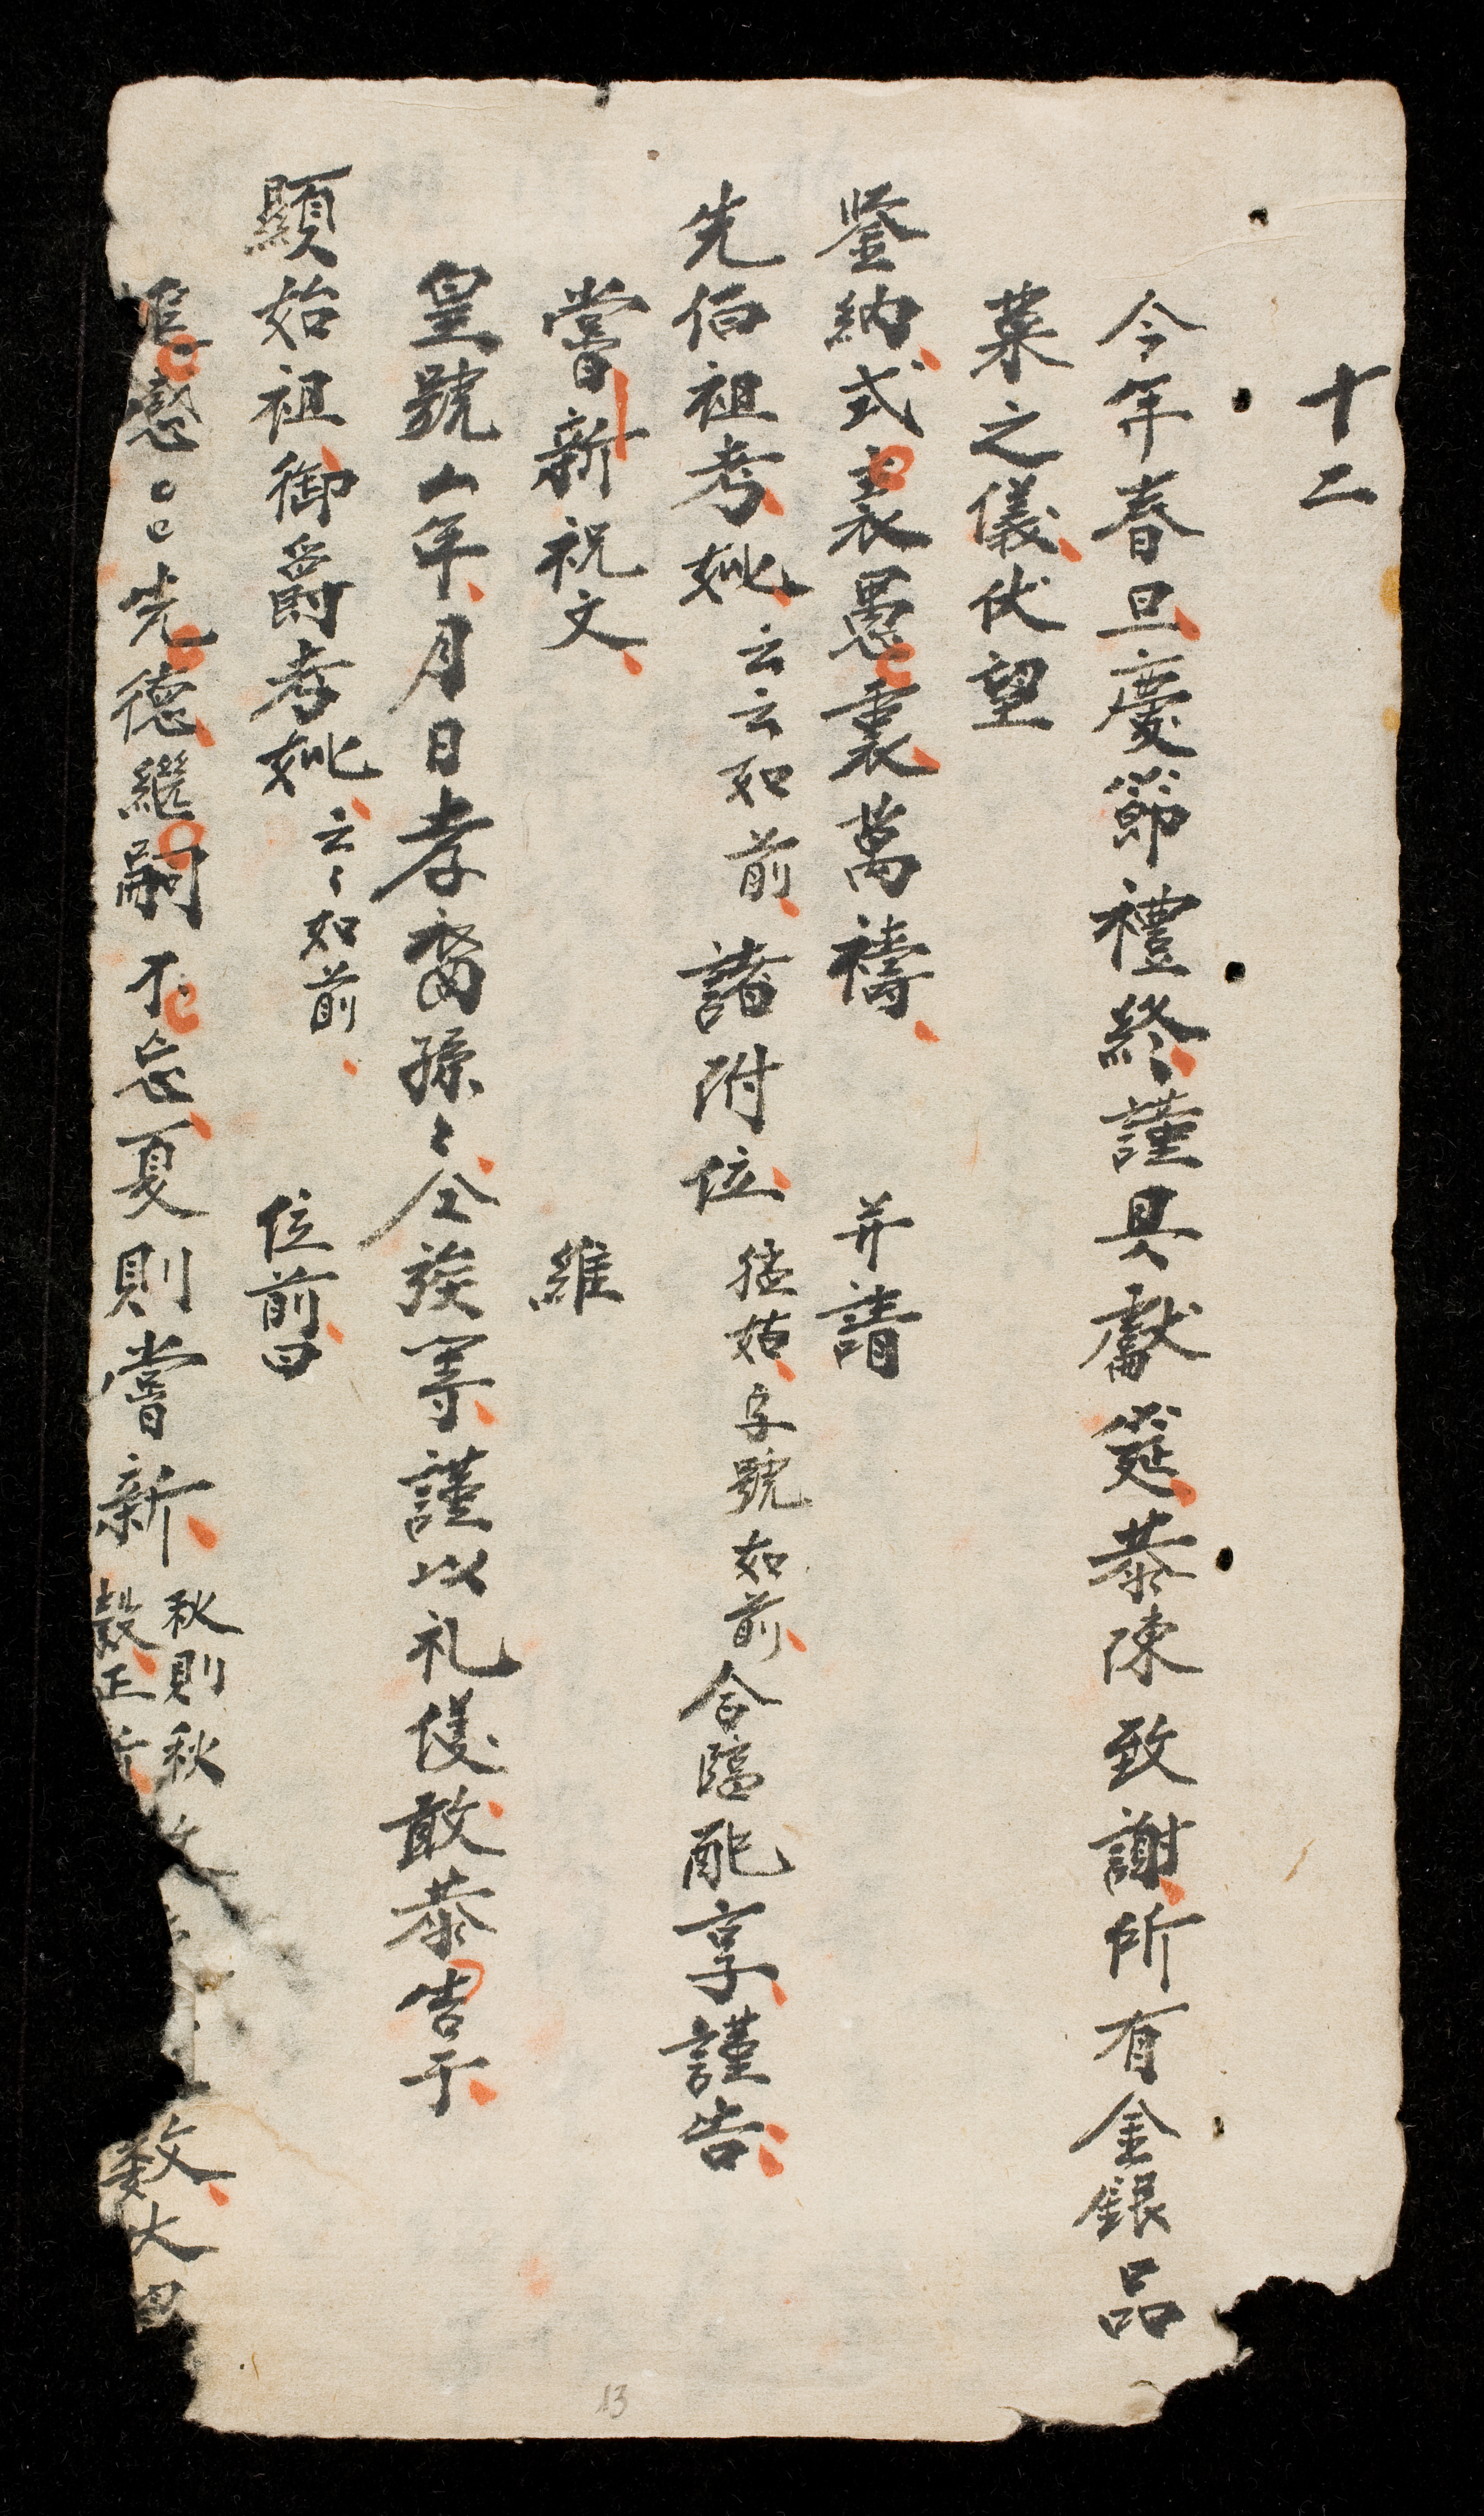 十二
今年春旦慶節禮終謹具獻筵恭陳致謝所有金銀品
菓之儀伏望
鉴納式表愚衷萬禱 并請
先伯祖考妣云云如前諸附位猛姑字號如前合臨配享謹告
嘗新祝文 維
皇號厶年月日孝裔孫〻仝族等謹以礼儀敢恭告于
顯始祖御爵考妣云〻如前 位前曰
先德繼嗣不忘夏則嘗新秋則秋
数大
13